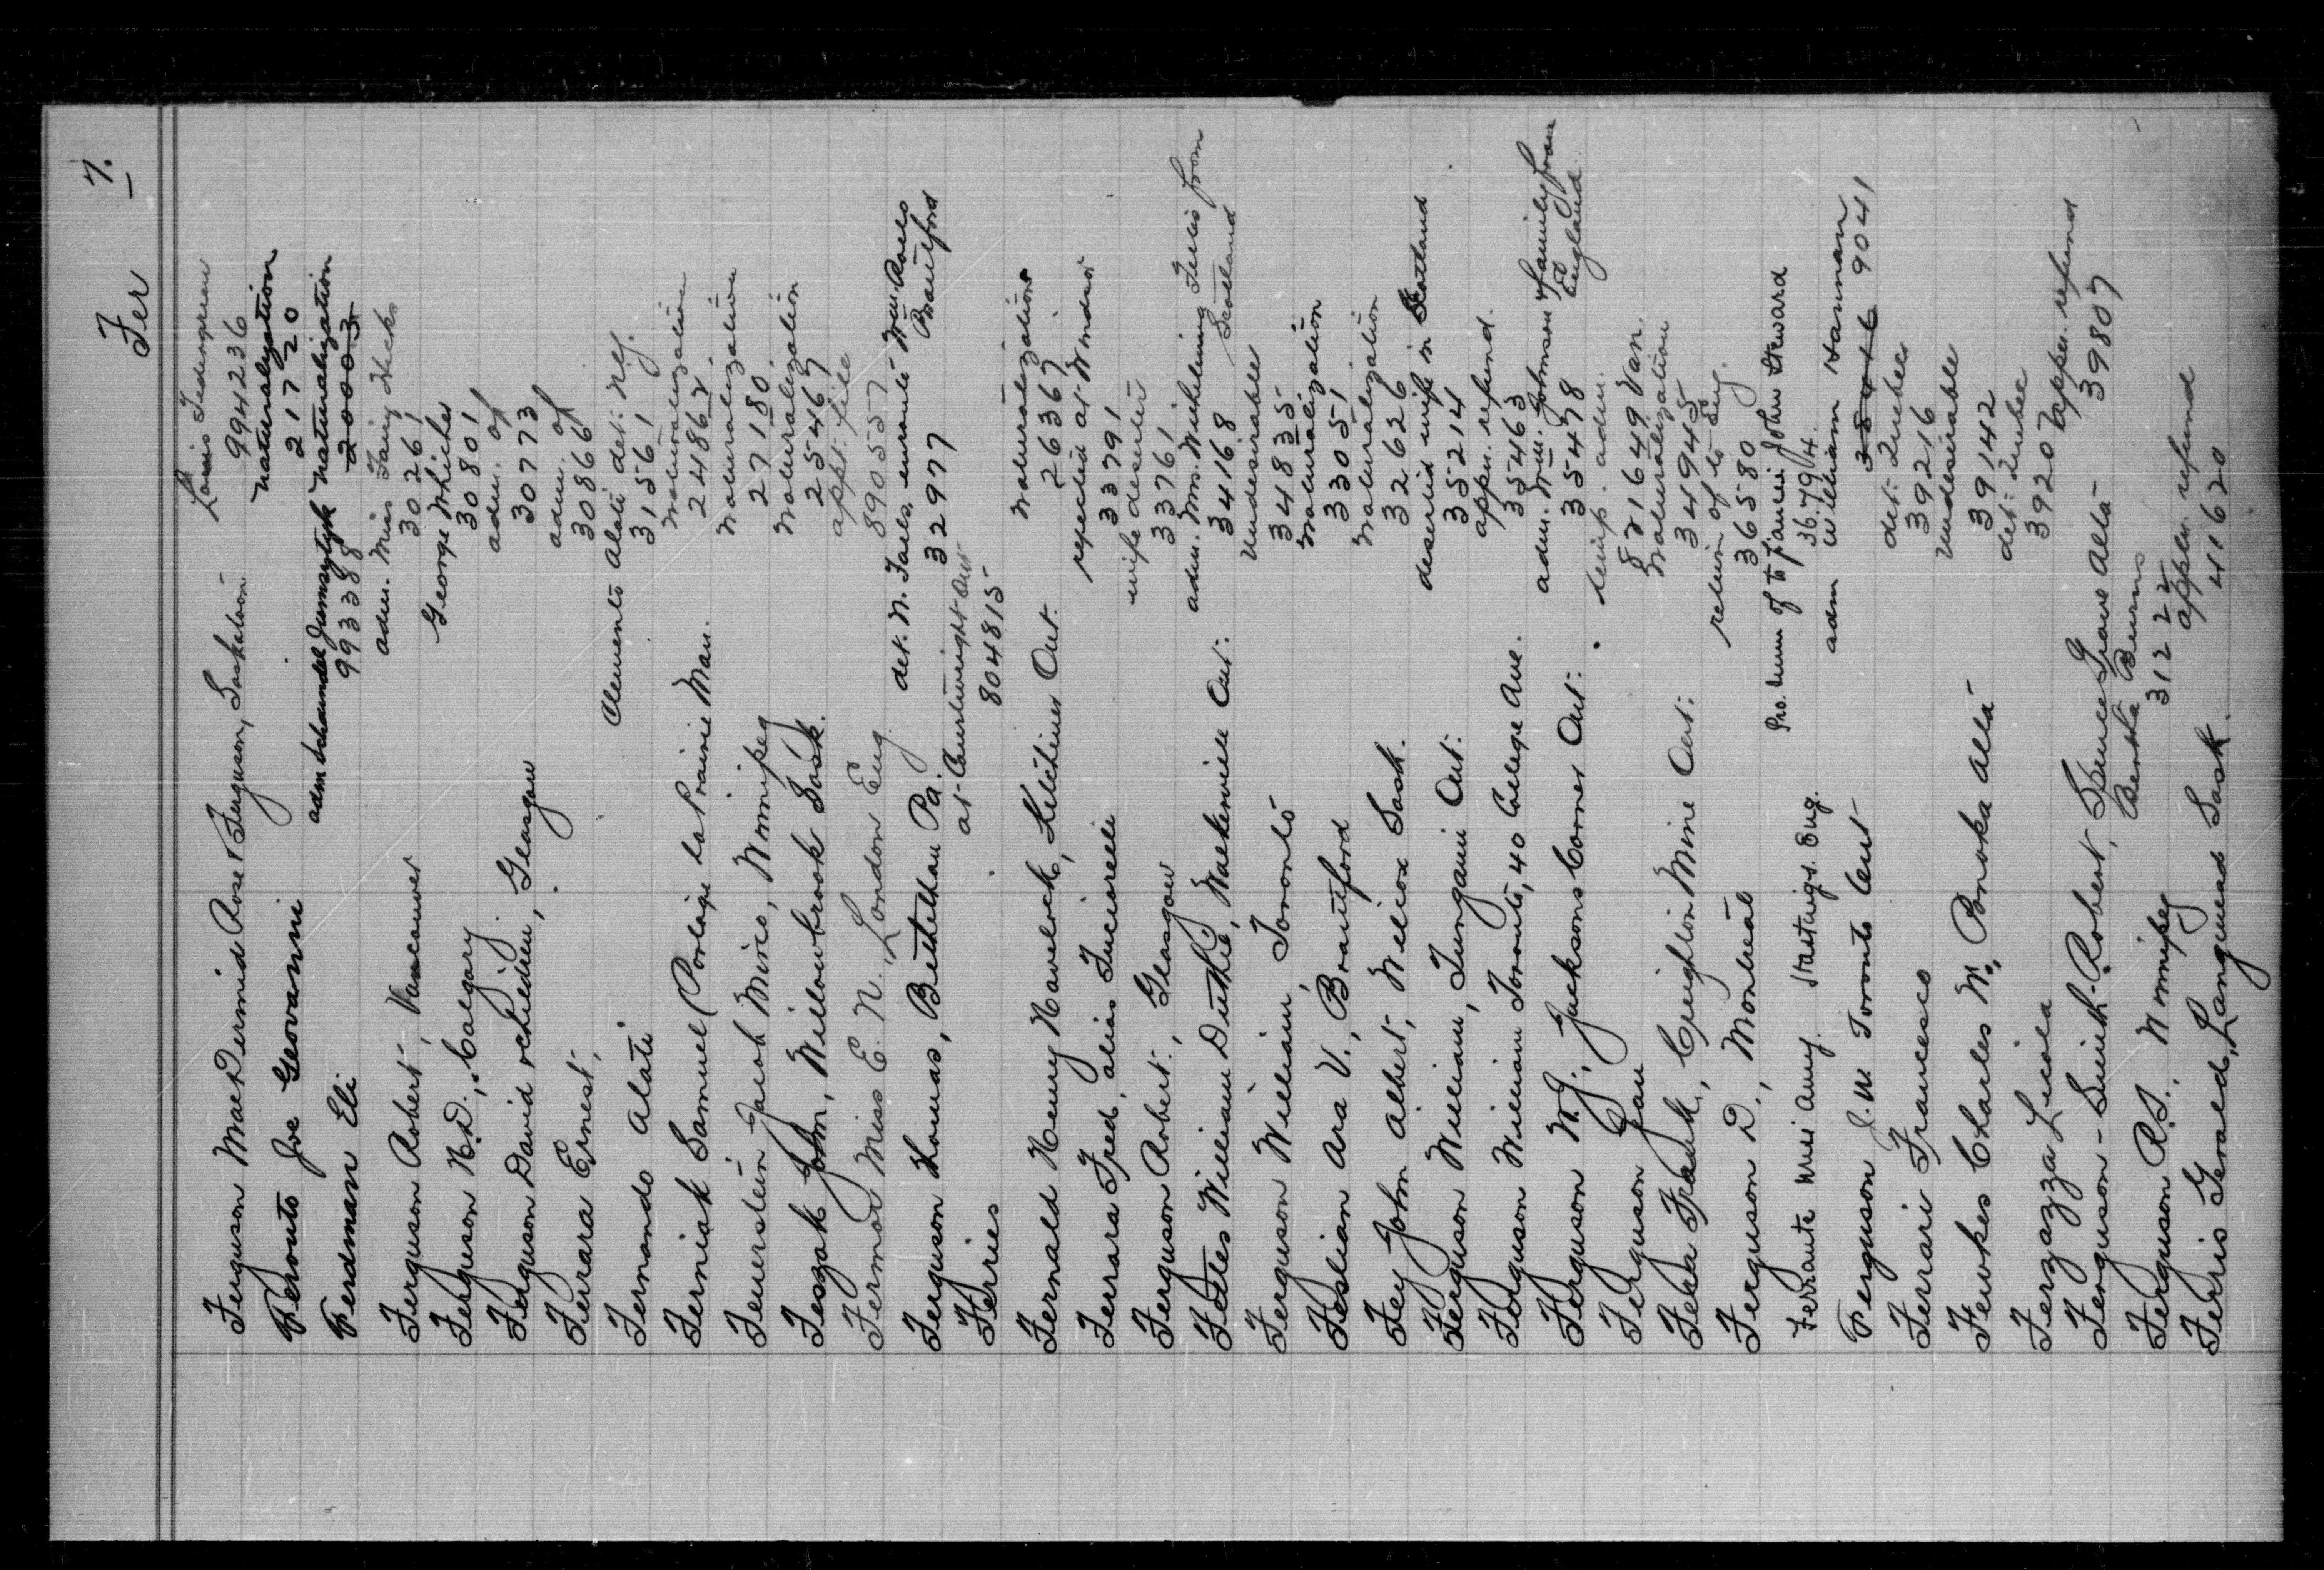 Fer 7.
Ferguson MacDermid Rose & Ferguson, Saskatoon Louis Tedengren
994236
Ferouto Joe Geovanni naturalization
21720
Ferdman Eli adm Schaundel naturalization
99338 20003
Ferguson Robert, Vancouver adm. Miss Fairy Hicks
30261
Ferguson N.D., Calgary George Whicher
30801
Ferguson David re children, Glasgow adm. of
30773
Ferrara Ernest, adm. of
30866
Fernando Alati Clemento Alati det. N.Y.
31561
Ferniak Samuel Portage la Prairie Man. naturalization
24862
Feuerstein Jacob Mirco, Winnipeg naturalization
27180
Feszak John, Willowbrook Sask. naturalization
25467
Fermor Miss E. N., London Eng. appt. file
890557
Ferguson Thomas, Bethlehem Pa. det. N. Falls, enroute Wm. Roels Brantford
32977
Ferries at Courtwright Ont
804815
Fernald Henry Havelock, Kitchener Ont. naturalization
26367
Ferrara Fred, alias Tucciarelli rejected at Windsor
33791
Ferguson Robert, Glasgow wife deserter
33761
Fettes William Duthie, Walkerville Ont. adm. Mrs. Wilhelmina Fettes from Scotland
34168
Ferguson William, Toronto Undesirable
34835
Feslian Ara V., Brantford naturalization
33051
Fey John Albert, Wilcox Sask. naturalization
32626
Ferguson William, Ont. deserted wife in Scotland
35214
Ferguson William Toronto, 40 College Ave. appn. refund.
35463
Ferguson W. J., Jacksons Corner Ont. adm. Wm. Johnson & family from England
35478
Ferguson temp. adm.
821649 Van.
Fera Frank, Creighton Mine Ont. naturalization
34945
Ferguson D., Montreal return of to Eng.
36580
Ferrante Miss Amy. Hastings. Eng. Pro. Numn of to fiancé John Steward
36794.
Ferguson J. W. Toronto Ont adm William Hannan
9041
Ferrari Francesco det. Quebec
39216
Fewkes Charles W., Ponoka Alta Undesirable
39142
Ferzazza Licola det. Quebec
39207
Ferguson-Smith Robert, Spruce Grove Alta appn. refund
39807
Ferguson R.S., Winnipeg Bertha Burns
31222
Ferris Gerald, Langmead Sask. appn. refund
41620